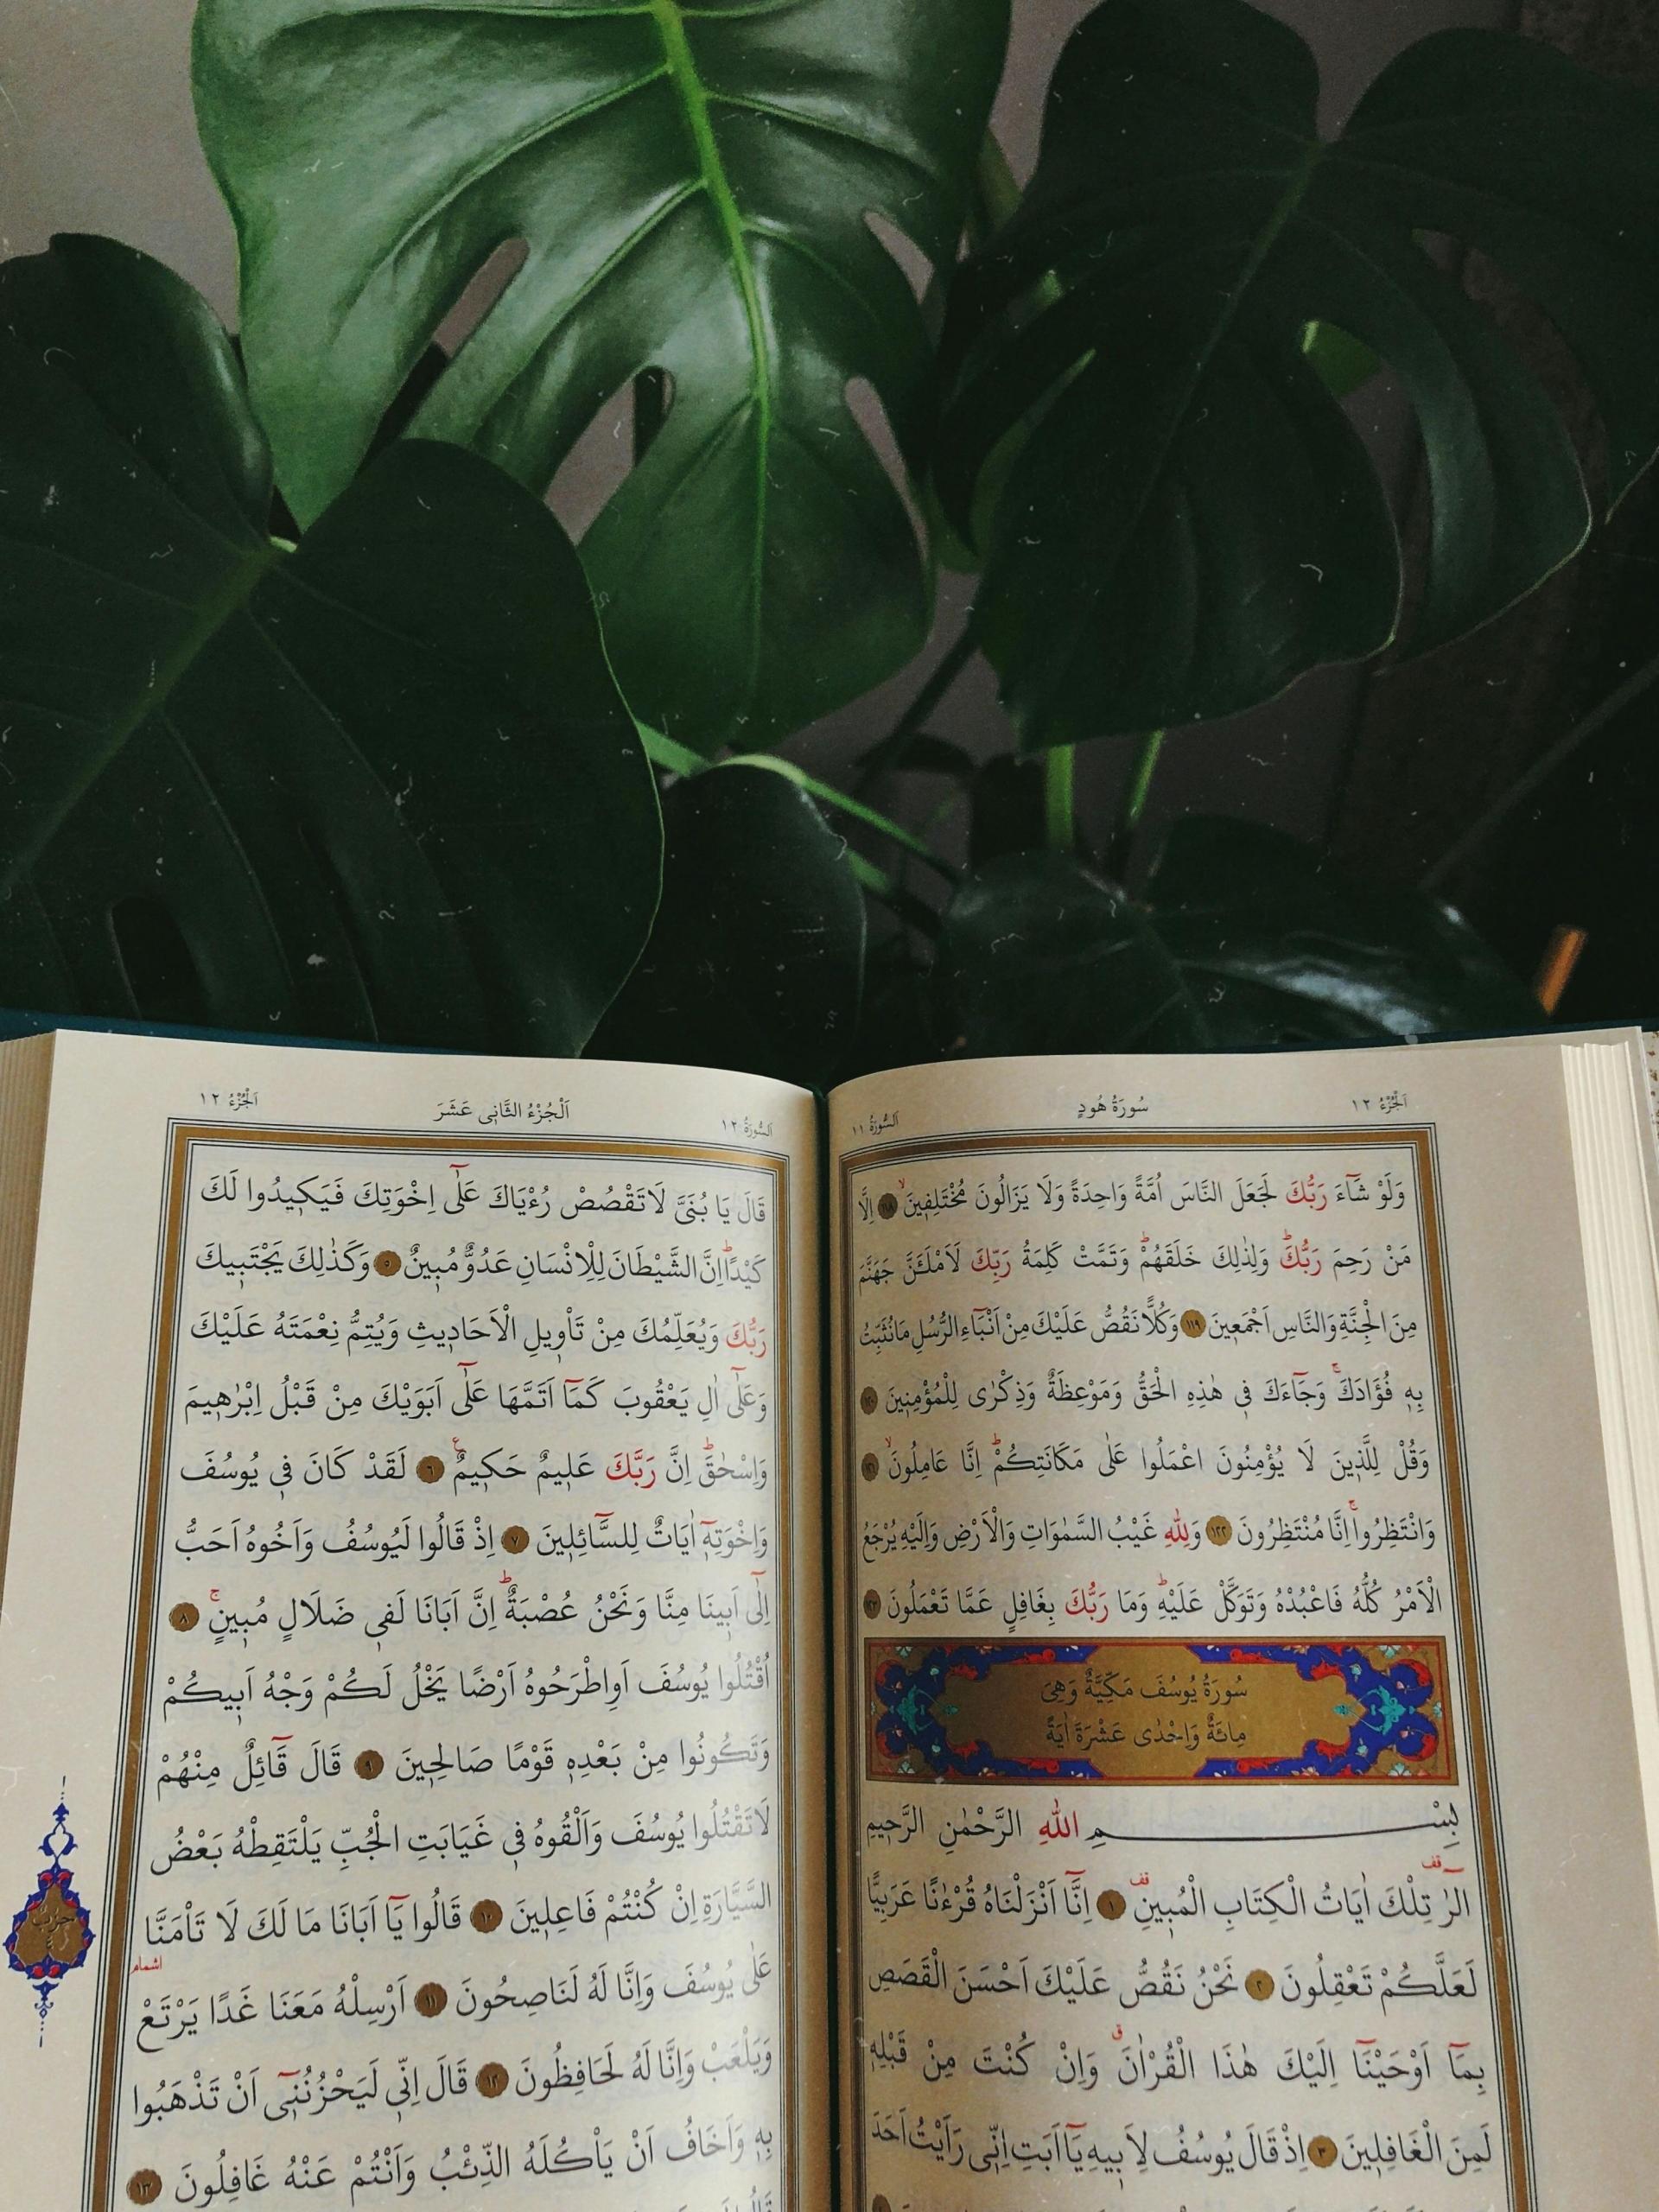 اَلْجُزْءُ ١٢
سُورَةُ هُودٍ
اَلسُّورَةُ ١١
وَلَوْ شَٓاءَ رَبُّكَ لَجَعَلَ النَّاسَ اُمَّةً وَاحِدَةً وَلَا يَزَالُونَ مُخْتَلِفٖينَۙ ١١٨ اِلَّا
مَنْ رَحِمَ رَبُّكَؕ وَلِذٰلِكَ خَلَقَهُمْؕ وَتَمَّتْ كَلِمَةُ رَبِّكَ لَاَمْلَـَٔنَّ جَهَنَّمَ
مِنَ الْجِنَّةِ وَالنَّاسِ اَجْمَعٖينَ ١١٩ وَكُلًّا نَقُصُّ عَلَيْكَ مِنْ اَنْبَٓاءِ الرُّسُلِ مَا نُثَبِّتُ
بِهٖ فُؤٰادَكَۚ وَجَٓاءَكَ فٖى هٰذِهِ الْحَقُّ وَمَوْعِظَةٌ وَذِكْرٰى لِلْمُؤْمِنٖينَ ١٢٠
وَقُلْ لِلَّذٖينَ لَا يُؤْمِنُونَ اعْمَلُوا عَلٰى مَكَانَتِكُمْؕ اِنَّا عَامِلُونَۙ ١٢١
وَانْتَظِرُواۚ اِنَّا مُنْتَظِرُونَ ١٢٢ وَلِلّٰهِ غَيْبُ السَّمٰوَاتِ وَالْاَرْضِ وَاِلَيْهِ يُرْجَعُ
الْاَمْرُ كُلُّهُ فَاعْبُدْهُ وَتَوَكَّلْ عَلَيْهِؕ وَمَا رَبُّكَ بِغَافِلٍ عَمَّا تَعْمَلُونَ ١٢٣
سُورَةُ يُوسُفَ مَكِّيَّةٌ وَهِىَ
مِائَةٌ وَاِحْدٰى عَشْرَةَ اٰيَةً
بِسْمِ اللّٰهِ الرَّحْمٰنِ الرَّحٖيمِ
الٓرٰࣞ تِلْكَ اٰيَاتُ الْكِتَابِ الْمُبٖينِࣞ ١ اِنَّٓا اَنْزَلْنَاهُ قُرْءٰنًا عَرَبِيًّا
لَعَلَّكُمْ تَعْقِلُونَ ٢ نَحْنُ نَقُصُّ عَلَيْكَ اَحْسَنَ الْقَصَصِ
بِمَٓا اَوْحَيْنَٓا اِلَيْكَ هٰذَا الْقُرْاٰنَࣗ وَاِنْ كُنْتَ مِنْ قَبْلِهٖ
لَمِنَ الْغَافِلٖينَ ٣ اِذْ قَالَ يُوسُفُ لِاَبٖيهِ يَٓا اَبَتِ اِنّٖى رَاَيْتُ اَحَدَ
اَلسُّورَةُ ١٢
اَلْجُزْءُ الثَّانٖى عَشَرَ
اَلْجُزْءُ ١٢
قَالَ يَا بُنَىَّ لَا تَقْصُصْ رُءْيَاكَ عَلٰٓى اِخْوَتِكَ فَيَكٖيدُوا لَكَ
كَيْدًاؕ اِنَّ الشَّيْطَانَ لِلْاِنْسَانِ عَدُوٌّ مُبٖينٌ ٥ وَكَذٰلِكَ يَجْتَبٖيكَ
رَبُّكَ وَيُعَلِّمُكَ مِنْ تَأْوٖيلِ الْاَحَادٖيثِ وَيُتِمُّ نِعْمَتَهُ عَلَيْكَ
وَعَلٰٓى اٰلِ يَعْقُوبَ كَمَٓا اَتَمَّهَا عَلٰٓى اَبَوَيْكَ مِنْ قَبْلُ اِبْرٰهٖيمَ
وَاِسْحٰقَؕ اِنَّ رَبَّكَ عَلٖيمٌ حَكٖيمٌ ع ٦ لَقَدْ كَانَ فٖى يُوسُفَ
وَاِخْوَتِهٖٓ اٰيَاتٌ لِلسَّٓائِلٖينَ ٧ اِذْ قَالُوا لَيُوسُفُ وَاَخُوهُ اَحَبُّ
اِلٰٓى اَبٖينَا مِنَّا وَنَحْنُ عُصْبَةٌؕ اِنَّ اَبَانَا لَفٖى ضَلَالٍ مُبٖينٍۚ ٨
اُقْتُلُوا يُوسُفَ اَوِ اطْرَحُوهُ اَرْضًا يَخْلُ لَكُمْ وَجْهُ اَبٖيكُمْ
وَتَكُونُوا مِنْ بَعْدِهٖ قَوْمًا صَالِحٖينَ ٩ قَالَ قَٓائِلٌ مِنْهُمْ
لَا تَقْتُلُوا يُوسُفَ وَاَلْقُوهُ فٖى غَيَابَتِ الْجُبِّ يَلْتَقِطْهُ بَعْضُ
السَّيَّارَةِ اِنْ كُنْتُمْ فَاعِلٖينَ ١٠ قَالُوا يَٓا اَبَانَا مَا لَكَ لَا تَأْمَنَّا
اشمام
عَلٰى يُوسُفَ وَاِنَّا لَهُ لَنَاصِحُونَ ١١ اَرْسِلْهُ مَعَنَا غَدًا يَرْتَعْ
وَيَلْعَبْ وَاِنَّا لَهُ لَحَافِظُونَ ١٢ قَالَ اِنّٖى لَيَحْزُنُنٖٓى اَنْ تَذْهَبُوا
بِهٖ وَاَخَافُ اَنْ يَأْكُلَهُ الذِّئْبُ وَاَنْتُمْ عَنْهُ غَافِلُونَ ١٣
حزب